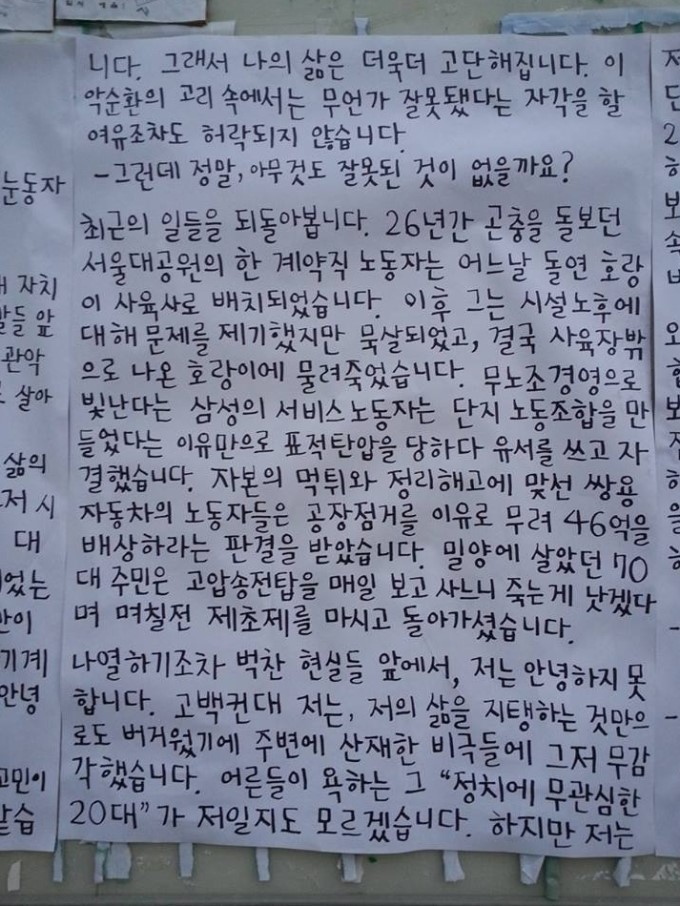 니다. 그래서 나의 삶은 더욱더 고단해집니다. 이
악순환의 고리 속에서는 무언가 잘못됐다는 자각을 할
여유조차도 허락되지 않습니다.
-그런데 정말, 아무것도 잘못된 것이 없을까요?
최근의 일들을 되돌아봅니다. 26년간 곤충을 돌보던
서울대공원의 한 계약직 노동자는 어느날 돌연 호랑
이 사육사로 배치되었습니다. 이후 그는 시설노후에
대해 문제를 제기했지만 묵살되었고, 결국 사육장밖
으로 나온 호랑이에 물려죽었습니다. 무노조경영으로
빛난다는 삼성의 서비스노동자는 단지 노동조합을 만
들었다는 이유만으로 표적탄압을 당하다 유서를 쓰고 자
결했습니다. 자본의 먹튀와 정리해고에 맞선 쌍용
자동차의 노동자들은 공장점거를 이유로 무려 46억을
배상하라는 판결을 받았습니다. 밀양에 살았던 70
대 주민은 고압송전탑을 매일 보고 사느니 죽는게 낫겠다
며 며칠전 제초제를 마시고 돌아가셨습니다.
나열하기조차 벅찬 현실들 앞에서, 저는 안녕하지 못
합니다. 고백컨대 저는, 저의 삶을 지탱하는 것만으
로도 버거웠기에 주변에 산재한 비극들에 그저 무감
각했습니다. 어른들이 욕하는 그 "정치에 무관심한
20대"가 저일지도 모르겠습니다. 하지만 저는
눈동자
자치
들 앞
관악
살아
삶의
저 시
대
었는
만이
기계
안녕
고민이
같습